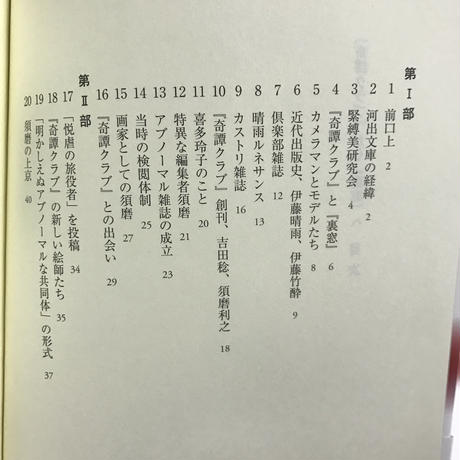 第Ⅰ部
1 前口上 2
2 河出文庫の経緯 2
3 緊縛美研究会 4
4 『奇譚クラブ』と『裏窓』 6
5 カメラマンとモデルたち 8
6 近代出版史、伊藤晴雨、伊藤竹酔 9
7 倶楽部雑誌 12
8 晴雨ルネサンス 13
9 カストリ雑誌 16
10 『奇譚クラブ』創刊、吉田稔、須磨利之 18
11 喜多玲子のこと 20
12 特異な編集者須磨 21
13 アブノーマル雑誌の成立 23
14 当時の検閲体制 25
15 画家としての須磨 27
16 『奇譚クラブ』との出会い 29
第Ⅱ部
17 「悦虐の旅役者」を投稿 34
18 『奇譚クラブ』の新しい絵師たち 35
19 「明かしえぬアブノーマルな共同体」の形式 37
20 須磨の上京 40